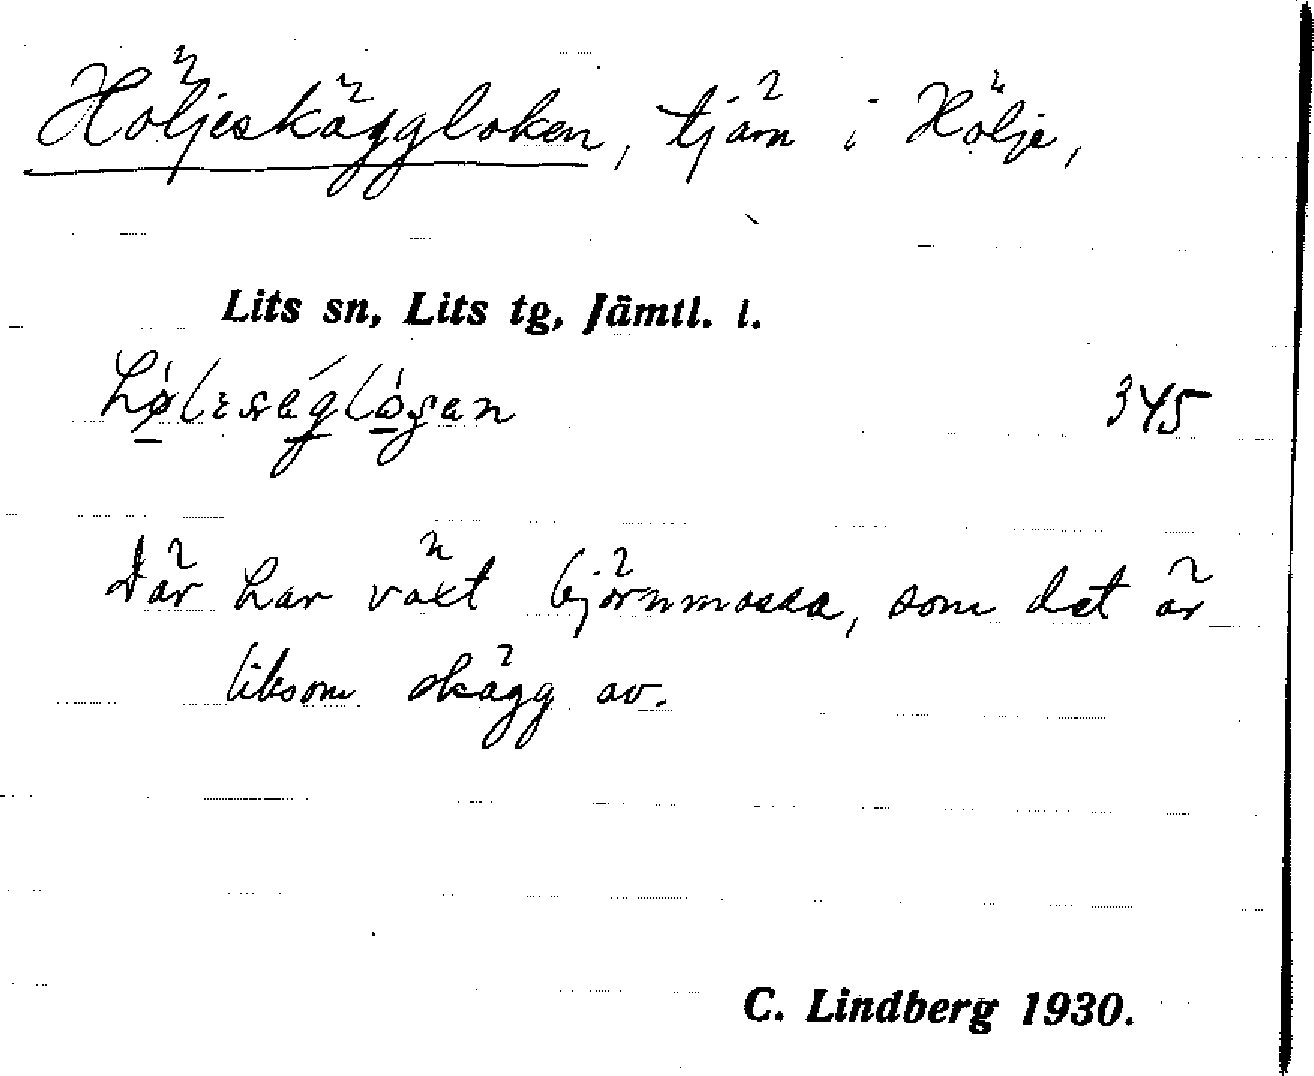 Höljeskäggloken, tjärn i Hölje,
Lits sn, Lits tg, Jämtl. l.
345
Där har växt björnmossa, som det är
liksom skägg av.
C. Lindberg 1930.